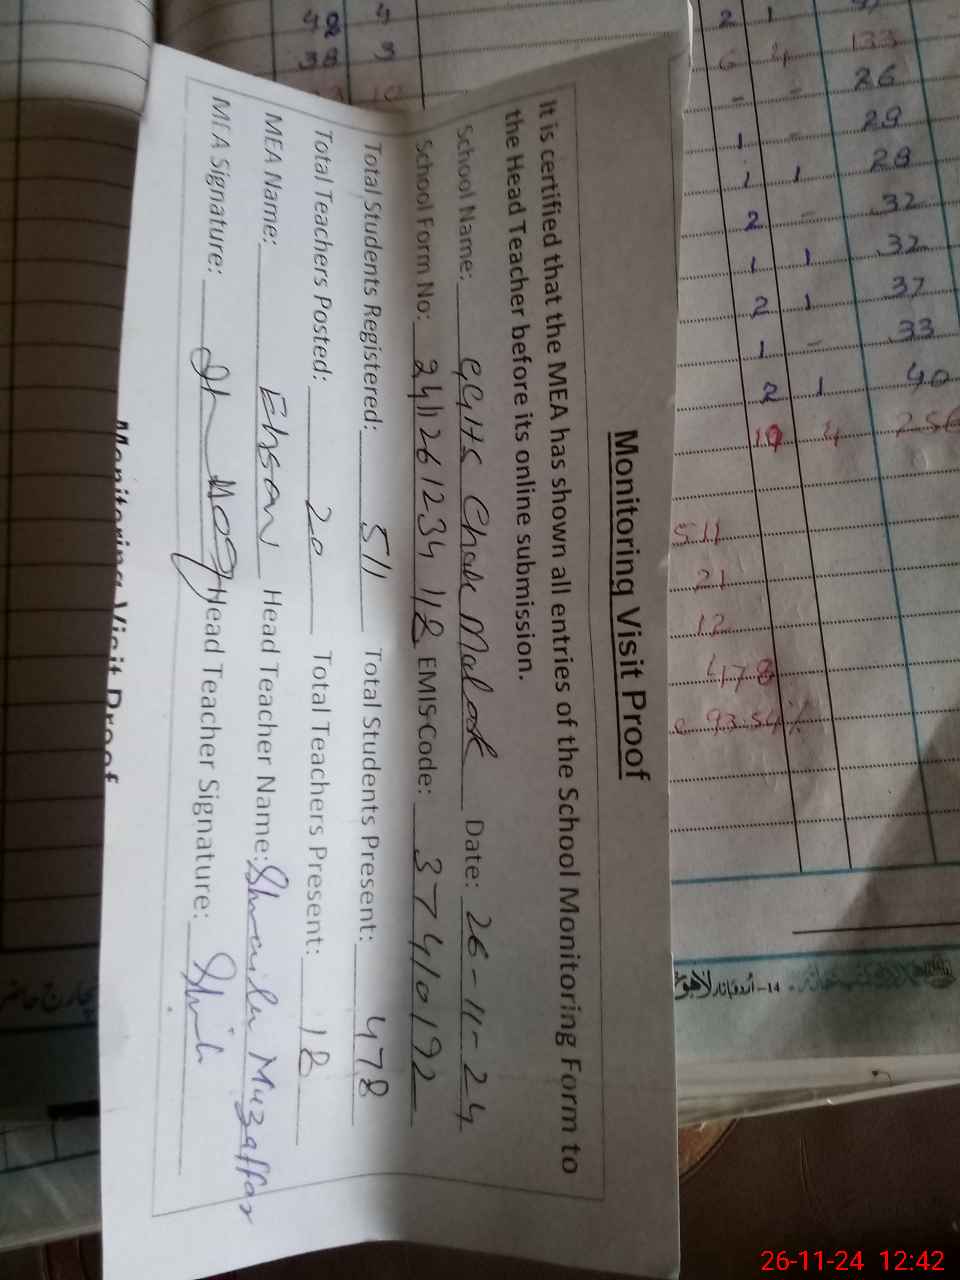 Monitoring Visit Proof
It is certified that the MEA has shown all entries of the School Monitoring Form to
the Head Teacher before its online submission.
School Name: GGHS Chak Malook Date: 26-11-24
School Form No: 2411261234112 EMIS Code: 37410192
Total Students Registered: 511 Total Students Present: 478
Total Teachers Posted: 20 Total Teachers Present: 18
MEA Name: Ehsan Head Teacher Name: Muzaffar
MEA Signature: Head Teacher Signature:
Monitoring Visit Proof
42 4
38
10
2 1
6 4 133
- - 26
1 - 29
1 1 28
2 - 32
1 1 32
2 1 37
1 - 33
2 1 40
10 4 256
511
21
12
478
93.54%
14-اُردو بازار لاہور
26-11-24 12:42